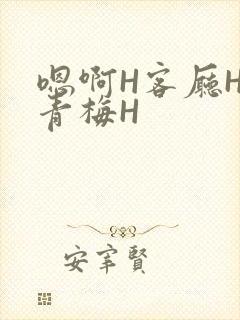 嗯啊H客厅H
青梅H
安宰賢